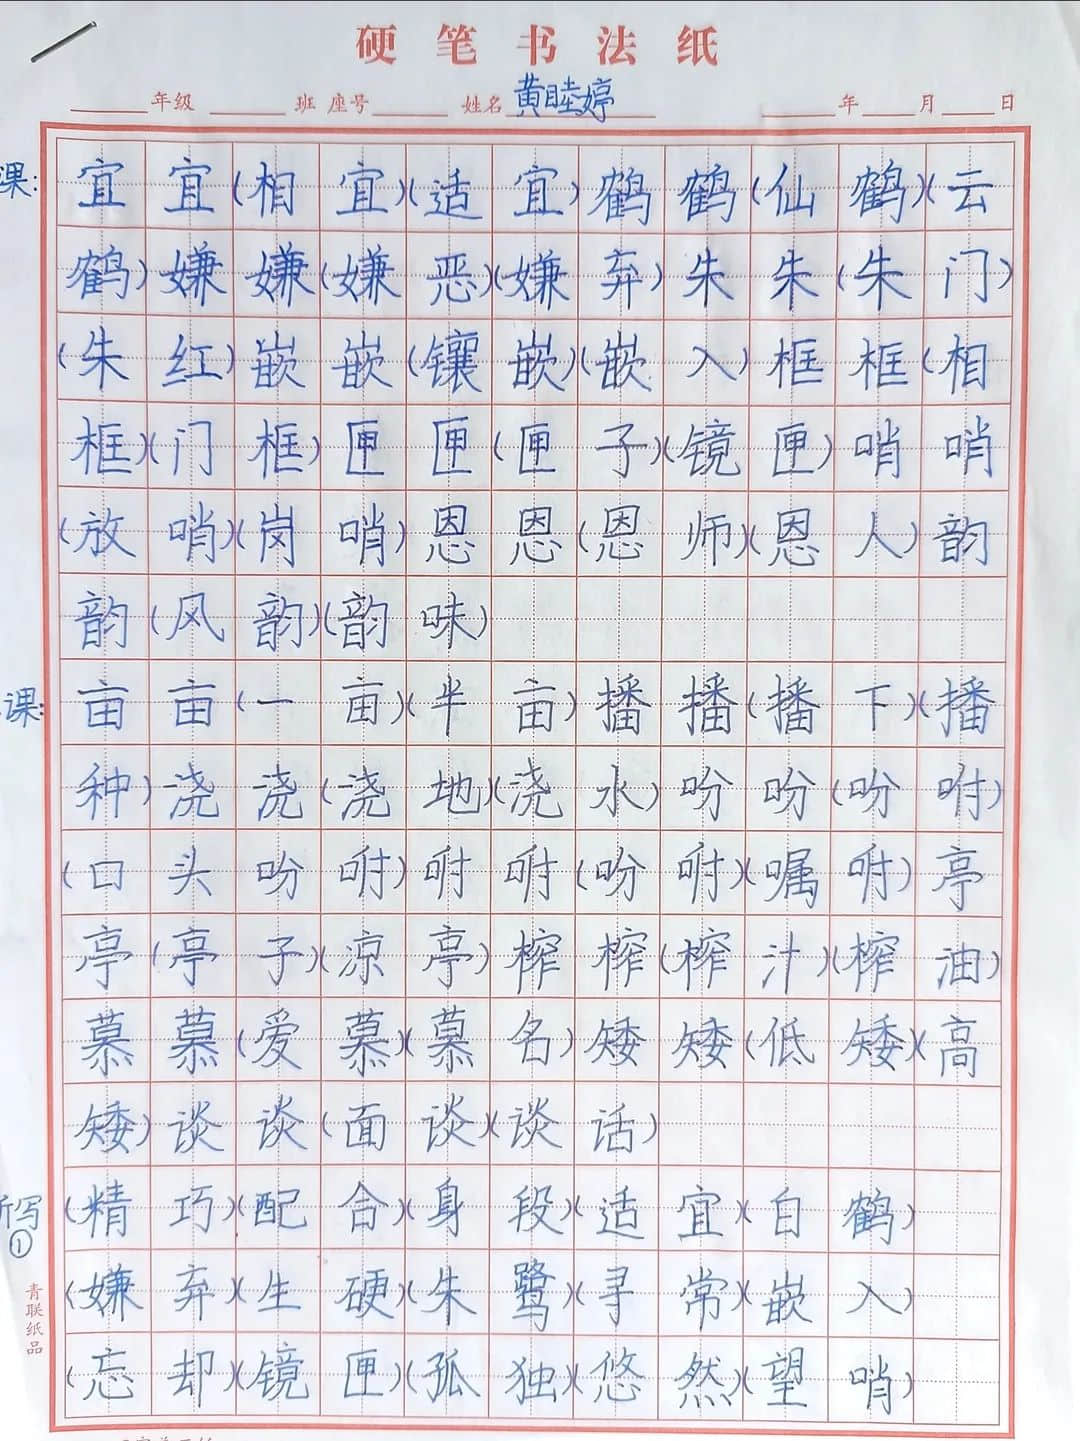 硬笔书法纸
年级 班 座号 姓名 黄睦婷 年 月 日
课:
宜宜(相宜)(适宜)鹤鹤(仙鹤)(云
鹤)嫌嫌(嫌恶)(嫌弃)朱朱(朱门)
(朱红)嵌嵌(镶嵌)(嵌入)框框(相
框)(门框)匣匣(匣子)(镜匣)哨哨
(放哨)(岗哨)恩恩(恩师)(恩人)韵
韵(风韵)(韵味)
课:
亩亩(一亩)(半亩)播播(播下)(播
种)浇浇(浇地)(浇水)吩吩(吩咐)
(口头吩咐)咐咐(吩咐)(嘱咐)亭
亭(亭子)(凉亭)榨榨(榨汁)(榨油)
慕慕(爱慕)(慕名)矮矮(低矮)(高
矮)谈谈(面谈)(谈话)
听写①
(精巧)(配合)(身段)(适宜)(白鹤)
(嫌弃)(生硬)(朱鹭)(寻常)(嵌入)
(忘却)(镜匣)(孤独)(悠然)(望哨)
青联纸品